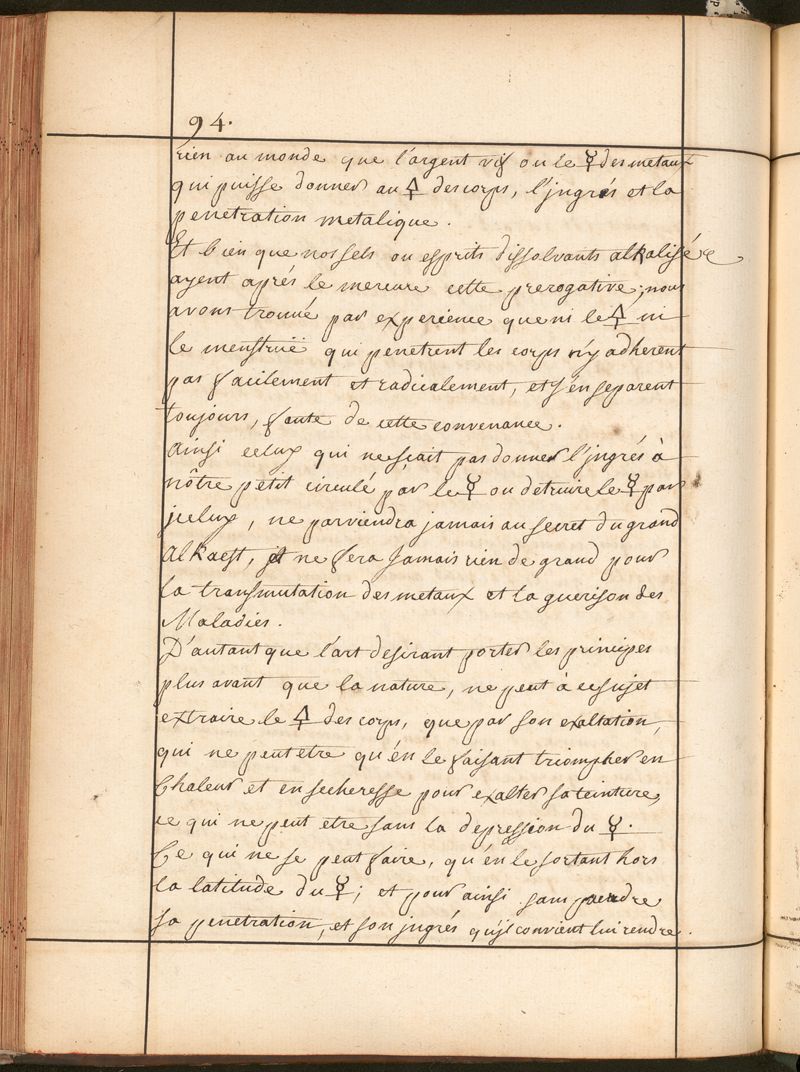 94.
rien au monde que l'argent vif ou le ☿ des metaux
qui puisse donner au 🜍 des corps, l'jngrés et la
penetration metalique.
Et bien que nos sels ou esprits dissolvants alkalisé
ayent aprés le mercure cette prerogative; nous
avons trouvé par experience que ni le 🜍 ni
le menstruë qui penetrent les corps n'y adherent
pas facilement et radicalement, et s'en separent
toujours, faute de cette convenance.
Ainsi celuy qui ne sçait pas donner l'jngrés à
nôtre petit circulé par le ☿ ou detruire le ☿ par
jceluy, ne parviendra jamais au secret du grand
AlKaest, et ne fera jamais rien de grand pour
la transmutation des metaux et la guerison des
Maladies.
D'autant que l'art desirant porter les principes
plus avant que la nature, ne peut à ce sujet
extraire le 🜍 des corps, que par son exaltation,
qui ne peut etre qu'én le faisant triompher en
Chaleur et en secheresse pour exalter sa teinture,
ce qui ne peut etre sans la depression du ☿.
Ce qui ne se peut faire, qu'én le sortant hors
la latitude du ☿; et pour ainsi sans perdre
sa penetration, et son jngrés qu'jl convient lui rendre.